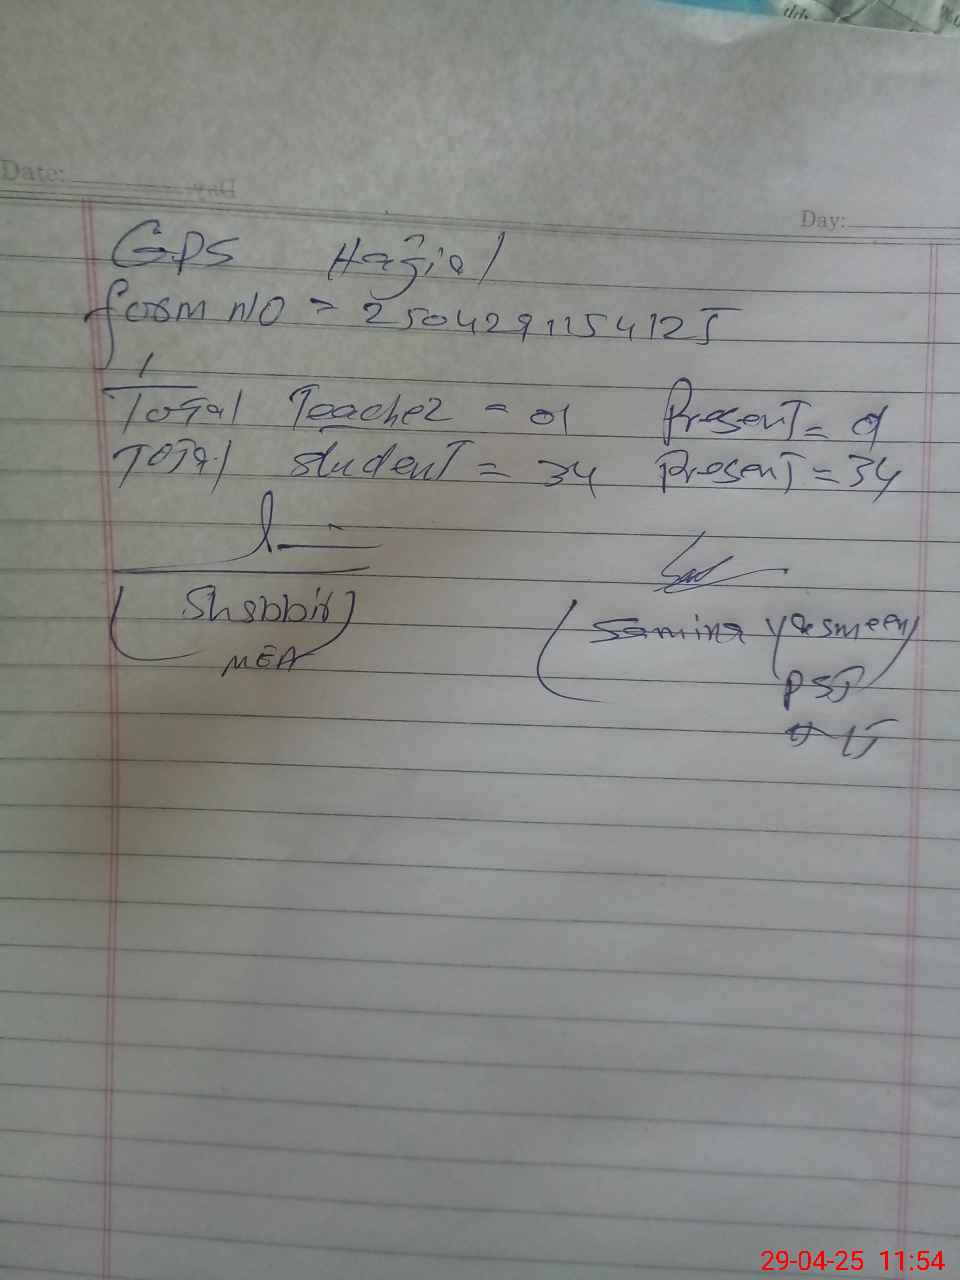 Date:
Day:
GPS Hagial
form NO = 250429115412 5
1
Total Teacher = 01 Present = 01
Total student = 34 Present = 34
(Shabbir)
MEA
(Samina Yasmeen)
PST
29-04-25 11:54